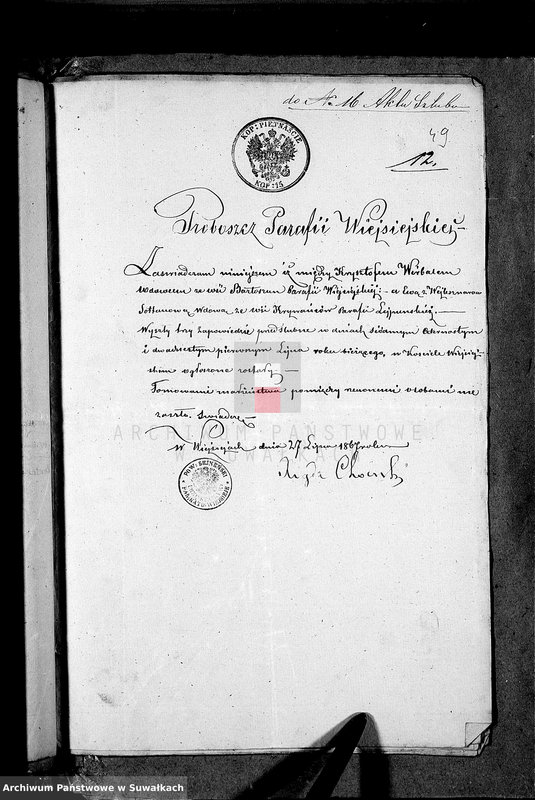 do N. 16 Aktu Szlubu
49
12.
KOP: PIĘTNAŚCIE
KOP: 15
Proboszcz Parafii Wiejsiejskiéj
Zaświadczam niniejszem iż między Krysztofem Wirbałem
wdowcem ze wsi Bartorun Parafii Wiejsiejskiéj: a Ewą z
Sottanową wdową ze wsi Parafii Lejpunskiéj.
Wyszły trzy zapowiedzie przedślubne w dniach siódmym czternastym
i dwudziestym pierwszym Lipca roku bieżącego, w Kościele Wiejsiej-
skim ogłoszone zostały.
Tamowanie małżeństwa pomiędzy osobami nie
zaszło. Świadczę
w Wiejsiejach dnia 27 Lipca 1867 roku
POW: SEJNEWSKI
ARCHIWUM PAŃSTWOWE
W SUWAŁKACH
Archiwum Państwowe w Suwałkach